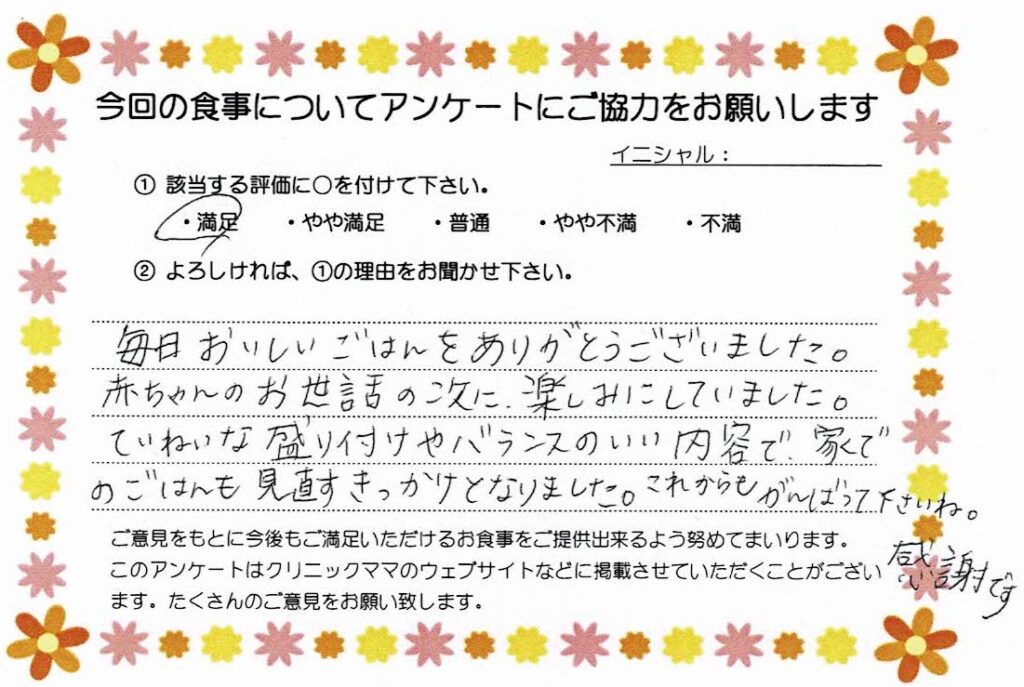 今回の食事についてアンケートにご協力をお願いします
イニシャル：
① 該当する評価に○を付けて下さい。
・満足 ・やや満足 ・普通 ・やや不満 ・不満
② よろしければ、①の理由をお聞かせ下さい。
毎日おいしいごはんをありがとうございました。
赤ちゃんのお世話の次に、楽しみにしていました。
ていねいな盛り付けやバランスのいい内容で、家で
のごはんも見直すきっかけとなりました。これからもがんばって下さいね。
感謝です
ご意見をもとに今後もご満足いただけるお食事をご提供出来るよう努めてまいります。
このアンケートはクリニックママのウェブサイトなどに掲載させていただくことがござい
ます。たくさんのご意見をお願い致します。